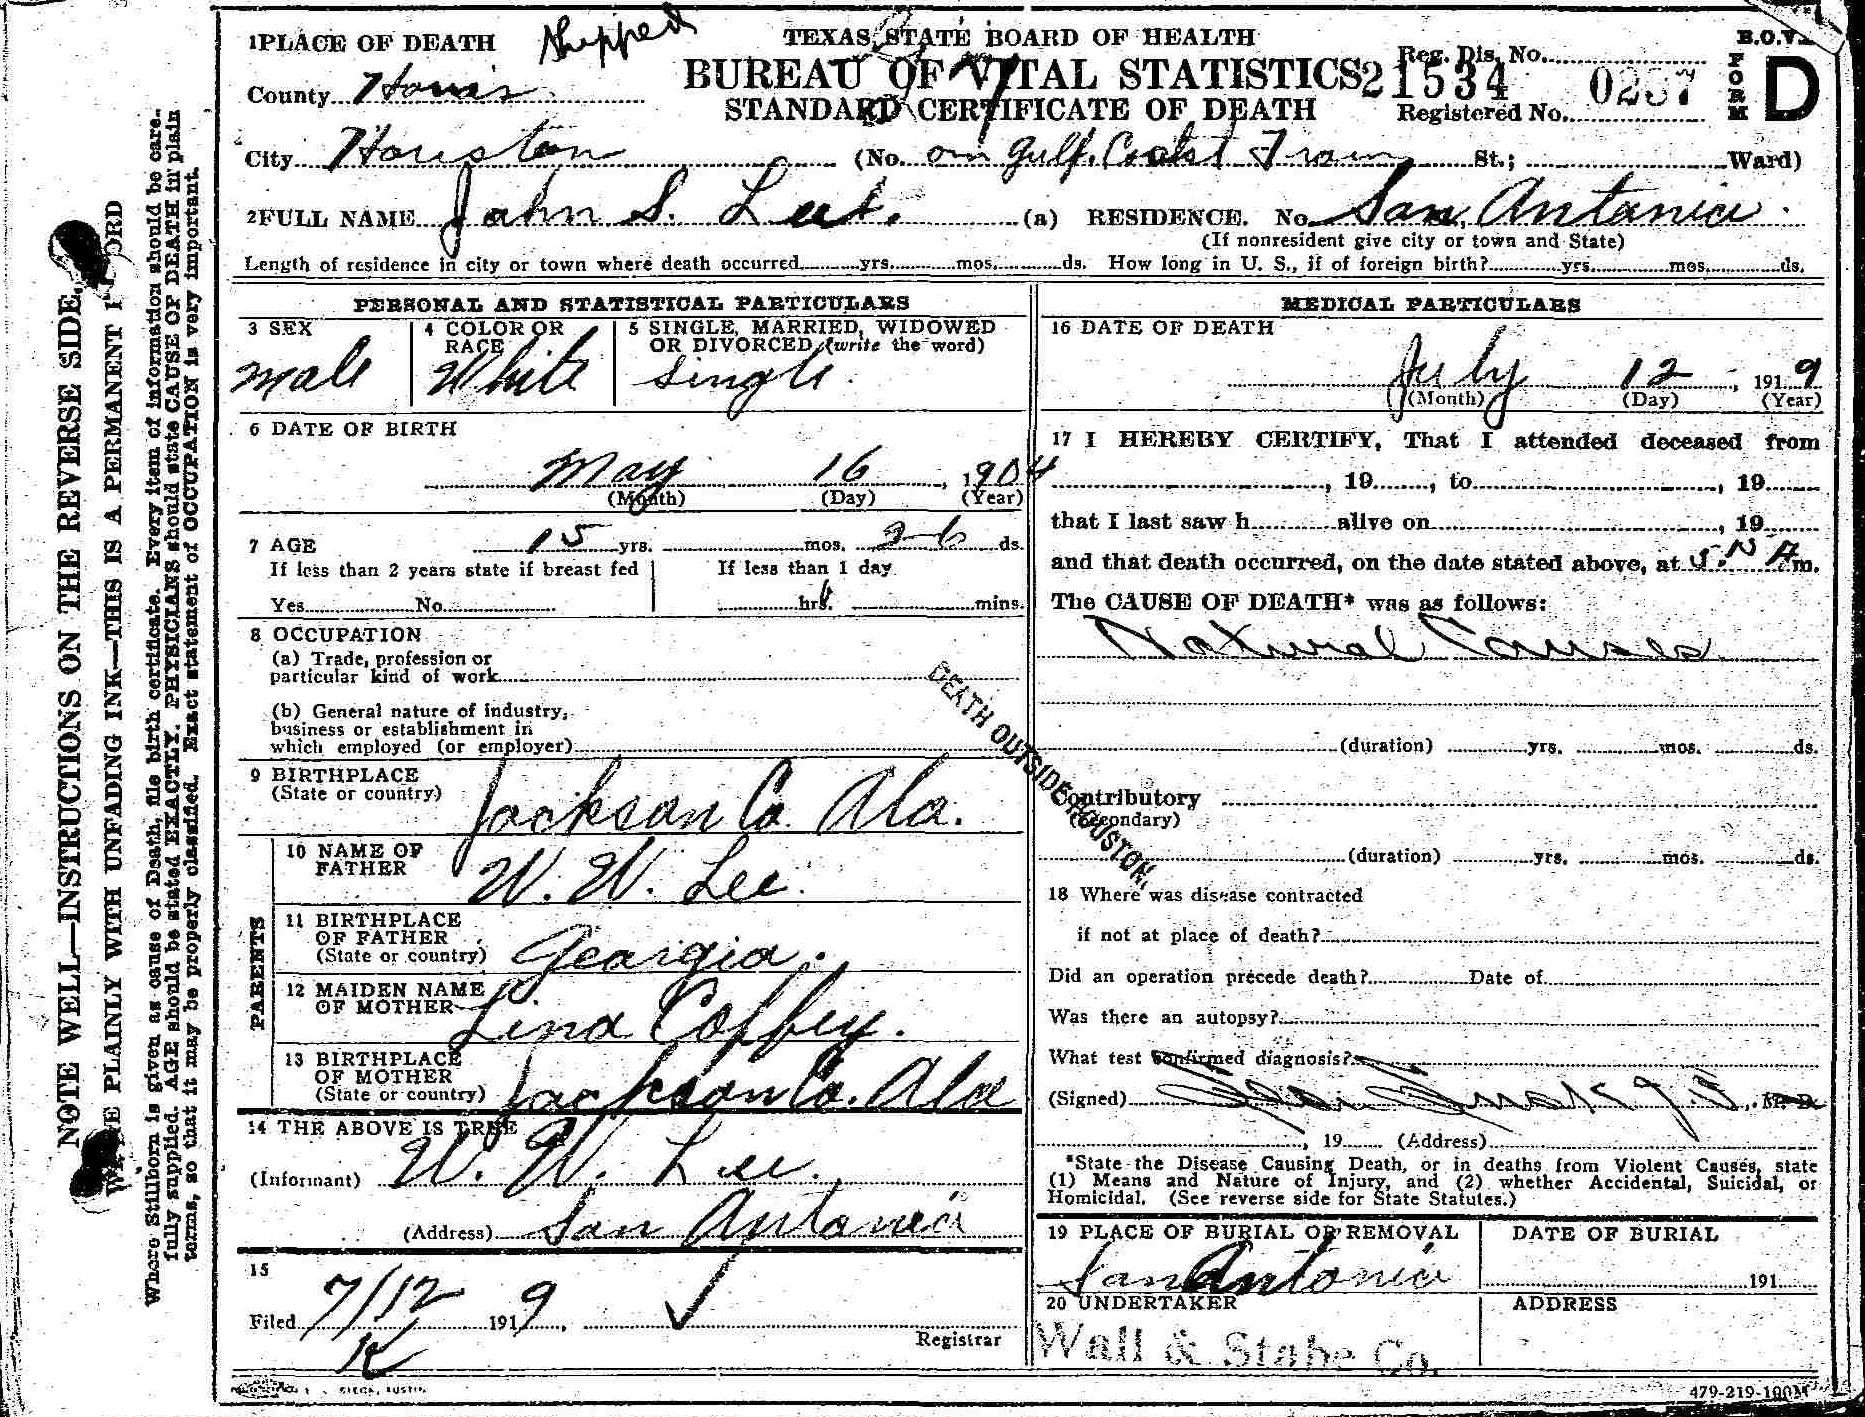 1PLACE OF DEATH Shipped
TEXAS STATE BOARD OF HEALTH
BUREAU OF VITAL STATISTICS
STANDARD CERTIFICATE OF DEATH
21534
Reg. Dis. No.
Registered No. 0237
B.O.V.
FORM D
County Harris
City Houston (No. on Gulf Coast Train St.; Ward)
2FULL NAME John S. Lee. (a) RESIDENCE. No. San Antonio.
(If nonresident give city or town and State)
Length of residence in city or town where death occurred yrs. mos. ds. How long in U. S., if of foreign birth? yrs. mos. ds.
PERSONAL AND STATISTICAL PARTICULARS
3 SEX
male
4 COLOR OR RACE
White
5 SINGLE, MARRIED, WIDOWED
OR DIVORCED (write the word)
Single.
6 DATE OF BIRTH
May 16, 1904
(Month) (Day) (Year)
7 AGE 15 yrs. mos. 26 ds.
If less than 2 years state if breast fed
Yes No
If less than 1 day
hrs. mins.
8 OCCUPATION
(a) Trade, profession or
particular kind of work
(b) General nature of industry,
business or establishment in
which employed (or employer)
9 BIRTHPLACE
(State or country) Jackson Co. Ala.
PARENTS
10 NAME OF
FATHER W. W. Lee.
11 BIRTHPLACE
OF FATHER
(State or country) Georgia.
12 MAIDEN NAME
OF MOTHER Lina Coffey.
13 BIRTHPLACE
OF MOTHER
(State or country) Jackson Co. Ala
14 THE ABOVE IS TRUE
(Informant) W. W. Lee.
(Address) San Antonio
15
Filed 7/12 1919.
Registrar
DEATH OUTSIDE HOUSTON.
MEDICAL PARTICULARS
16 DATE OF DEATH
July 12, 1919
(Month) (Day) (Year)
17 I HEREBY CERTIFY, That I attended deceased from
, 19 , to , 19
that I last saw h alive on , 19
and that death occurred, on the date stated above, at m.
The CAUSE OF DEATH* was as follows:
Natural Causes
(duration) yrs. mos. ds.
Contributory
(Secondary)
(duration) yrs. mos. ds.
18 Where was disease contracted
if not at place of death?
Did an operation precede death? Date of
Was there an autopsy?
What test confirmed diagnosis?
(Signed) M. D.
, 19 (Address)
*State the Disease Causing Death, or in deaths from Violent Causes, state
(1) Means and Nature of Injury, and (2) whether Accidental, Suicidal, or
Homicidal. (See reverse side for State Statutes.)
19 PLACE OF BURIAL OR REMOVAL
San Antonio
DATE OF BURIAL
191
20 UNDERTAKER
Wall & Stabe Co.
ADDRESS
479-219-100M
NOTE WELL—INSTRUCTIONS ON THE REVERSE SIDE.
WRITE PLAINLY WITH UNFADING INK—THIS IS A PERMANENT RECORD
Where Stillborn is given as cause of Death, file birth certificate. Every item of information should be care-
fully supplied. AGE should be stated EXACTLY. PHYSICIANS should state CAUSE OF DEATH in plain
terms, so that it may be properly classified. Exact statement of OCCUPATION is very important.